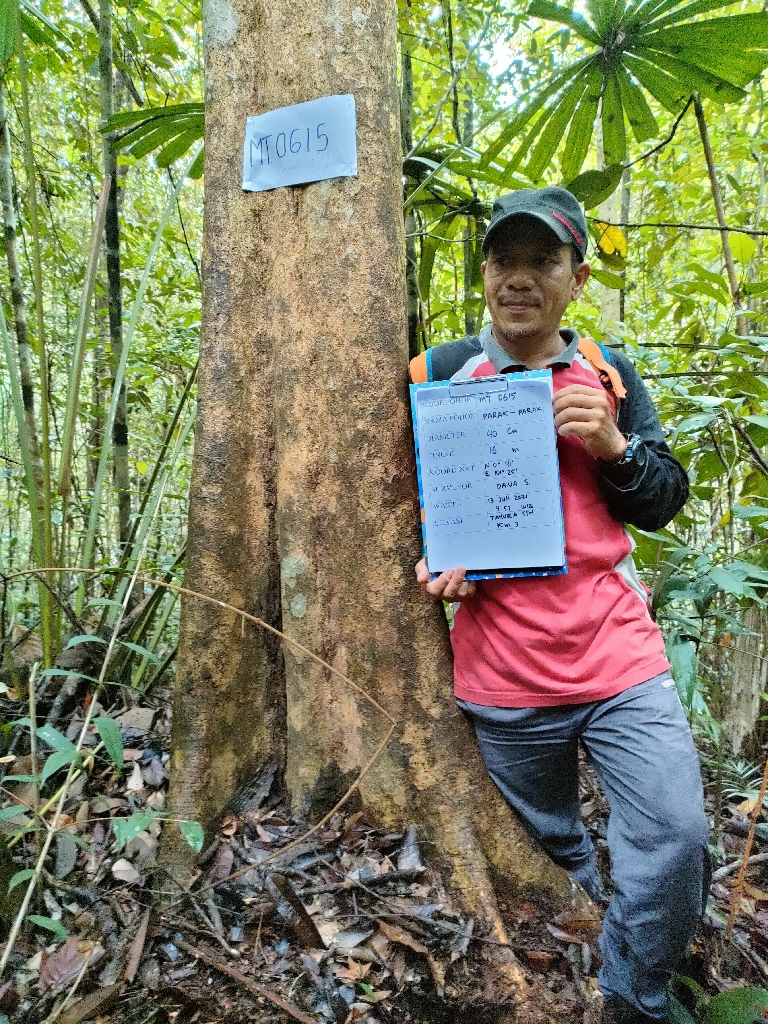 MT0615
KODE POHON MT 0615
NAMA POHON PARAK - PARAK
DIAMETER 40 Cm
TINGGI 15 m
KOORDINAT N 0°
E 101° 25'
SURVEYOR DANA S.
WAKTU 13 Juli 2021
WIB
LOKASI TAHURA SSH
Km 3